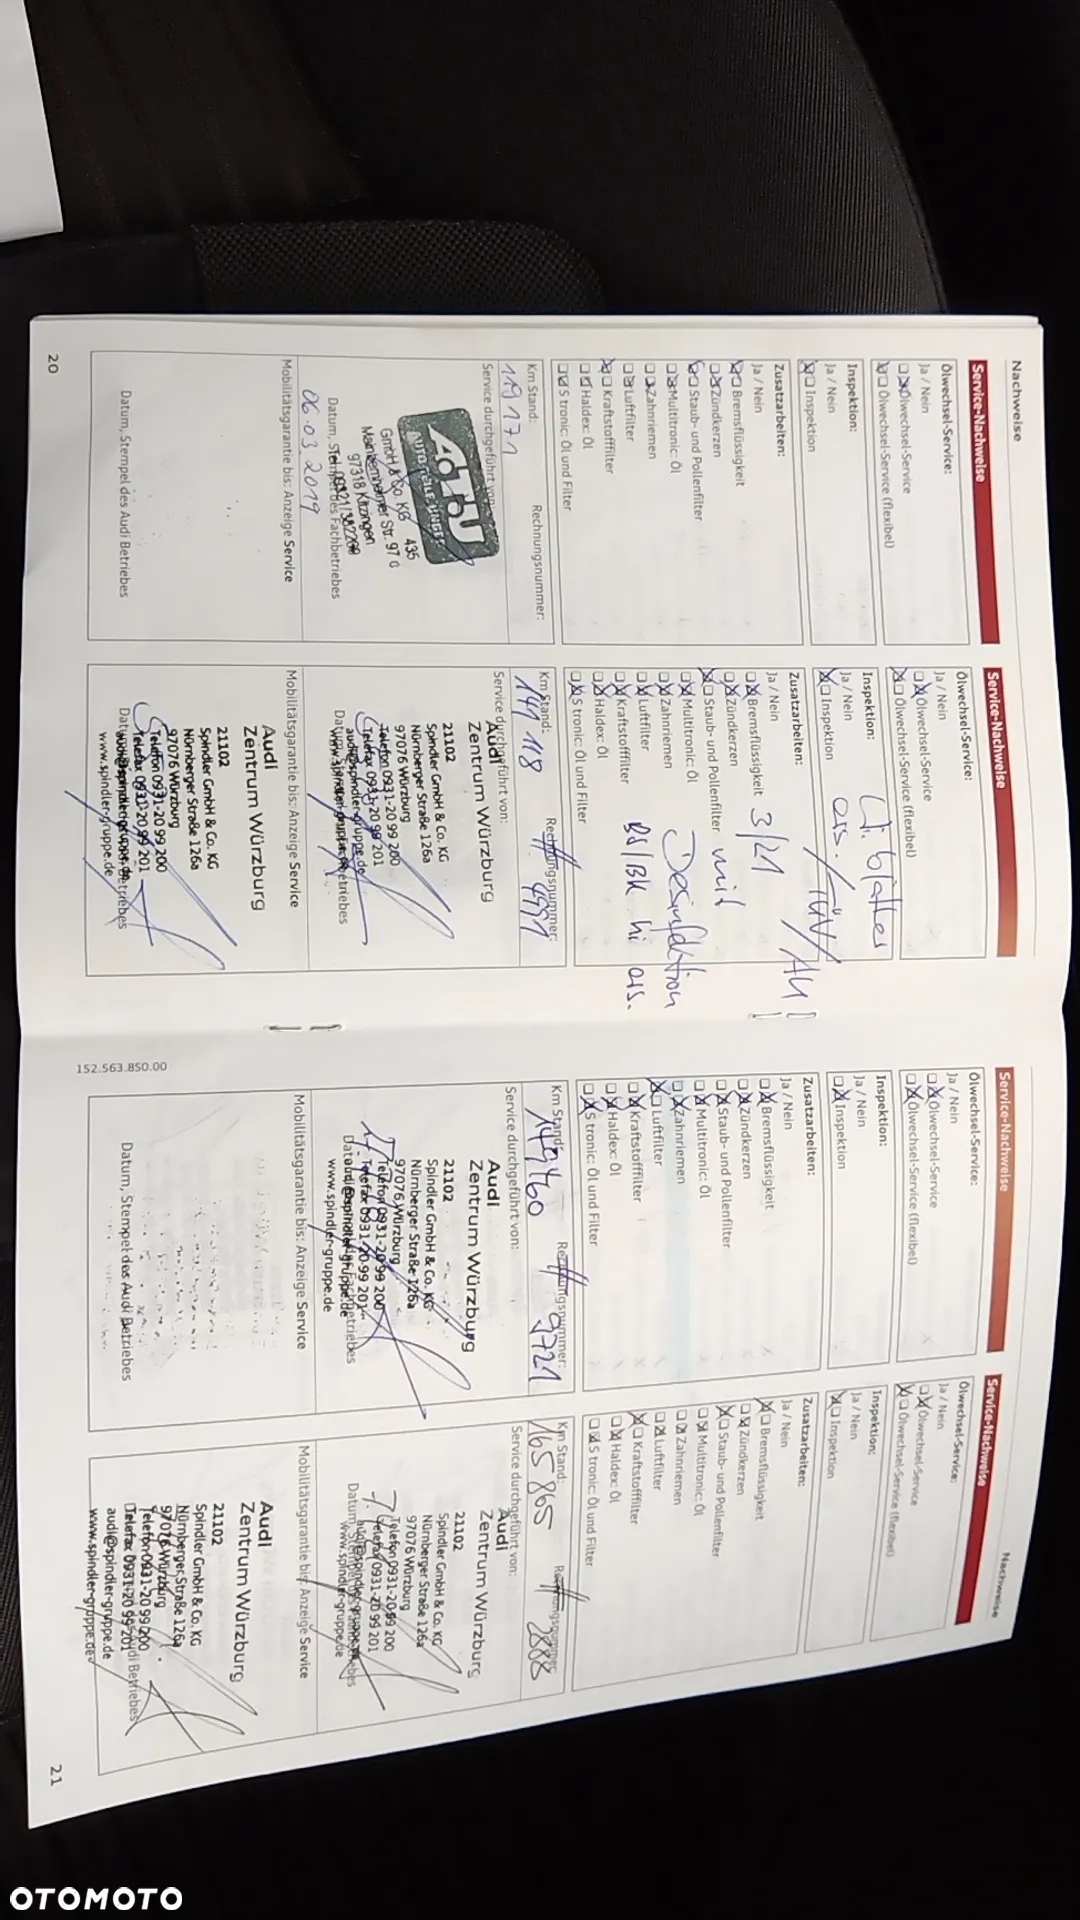 Nachweise
Service-Nachweise
Ölwechsel-Service:
Ja / Nein
Ölwechsel-Service
Ölwechsel-Service (flexibel)
Inspektion:
Ja / Nein
Inspektion
Zusatzarbeiten:
Ja / Nein
Bremsflüssigkeit
Zündkerzen
Staub- und Pollenfilter
Multitronic: Öl
Zahnriemen
Luftfilter
Kraftstofffilter
Haldex: Öl
S tronic: Öl und Filter
Km Stand:
Rechnungsnummer:
119171
Service durchgeführt von:
A.T.U
GmbH & Co. KG 435
Mainbernheimer Str. 97 c
97318 Kitzingen
Datum, Stempel des Fachbetriebes
Mobilitätsgarantie bis: Anzeige Service
06.03.2019
Datum, Stempel des Audi Betriebes
20
Service-Nachweise
Ölwechsel-Service:
Ja / Nein
Ölwechsel-Service
Ölwechsel-Service (flexibel)
Inspektion:
Ja / Nein
Inspektion
TÜV/AU
Zusatzarbeiten:
Ja / Nein
Bremsflüssigkeit 3/21
Zündkerzen
Staub- und Pollenfilter mit
Desinfektion
Multitronic: Öl
Zahnriemen
Luftfilter
BS/BK hi ers.
Kraftstofffilter
Haldex: Öl
S tronic: Öl und Filter
Km Stand:
Rechnungsnummer:
141 118
4991
Service durchgeführt von:
Audi
Zentrum Würzburg
21102
Spindler GmbH & Co. KG
Nürnberger Straße 126a
97076 Würzburg
Telefon 0931-20 99 200
Telefax 0931-20 99 201
audi@spindler-gruppe.de
www.spindler-gruppe.de
Datum, Stempel des Fachbetriebes
Mobilitätsgarantie bis: Anzeige Service
Audi
Zentrum Würzburg
21102
Spindler GmbH & Co. KG
Nürnberger Straße 126a
97076 Würzburg
Telefon 0931-20 99 200
Telefax 0931-20 99 201
audi@spindler-gruppe.de
www.spindler-gruppe.de
Datum, Stempel des Audi Betriebes
152.563.850.00
Service-Nachweise
Ölwechsel-Service:
Ja / Nein
Ölwechsel-Service
Ölwechsel-Service (flexibel)
Inspektion:
Ja / Nein
Inspektion
Zusatzarbeiten:
Ja / Nein
Bremsflüssigkeit
Zündkerzen
Staub- und Pollenfilter
Multitronic: Öl
Zahnriemen
Luftfilter
Kraftstofffilter
Haldex: Öl
S tronic: Öl und Filter
Km Stand:
Rechnungsnummer:
149460
9721
Service durchgeführt von:
Audi
Zentrum Würzburg
21102
Spindler GmbH & Co. KG
Nürnberger Straße 126a
97076 Würzburg
Telefon 0931-20 99 200
Telefax 0931-20 99 201
audi@spindler-gruppe.de
www.spindler-gruppe.de
Datum, Stempel des Fachbetriebes
Mobilitätsgarantie bis: Anzeige Service
Datum, Stempel des Audi Betriebes
Nachweise
Service-Nachweise
Ölwechsel-Service:
Ja / Nein
Ölwechsel-Service
Ölwechsel-Service (flexibel)
Inspektion:
Ja / Nein
Inspektion
Zusatzarbeiten:
Ja / Nein
Bremsflüssigkeit
Zündkerzen
Staub- und Pollenfilter
Multitronic: Öl
Zahnriemen
Luftfilter
Kraftstofffilter
Haldex: Öl
S tronic: Öl und Filter
Km Stand:
Rechnungsnummer:
165 865
2888
Service durchgeführt von:
Audi
Zentrum Würzburg
21102
Spindler GmbH & Co. KG
Nürnberger Straße 126a
97076 Würzburg
Telefon 0931-20 99 200
Telefax 0931-20 99 201
audi@spindler-gruppe.de
www.spindler-gruppe.de
Datum, Stempel des Fachbetriebes
Mobilitätsgarantie bis: Anzeige Service
Audi
Zentrum Würzburg
21102
Spindler GmbH & Co. KG
Nürnberger Straße 126a
97076 Würzburg
Telefon 0931-20 99 200
Telefax 0931-20 99 201
audi@spindler-gruppe.de
www.spindler-gruppe.de
Datum, Stempel des Audi Betriebes
21
OTOMOTO